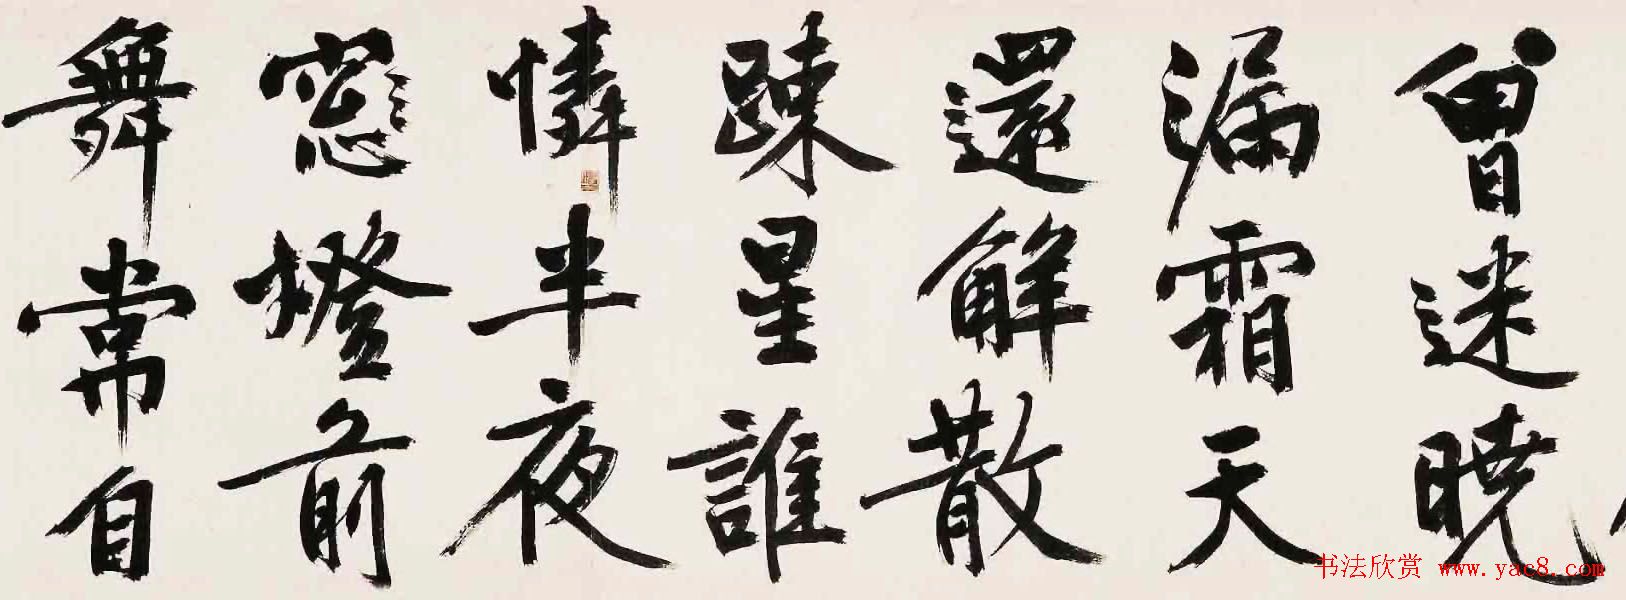 曾迷晓
漏霜天
還解散
踈星誰
憐半夜
窓燈前
舞常自
书法欣赏 www.yac8.com